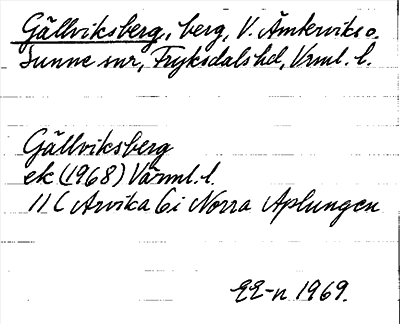 Gällviksberg, berg, V. Ämtervik o.
Sunne snr, Fryksdals hd, Vrml. l.
Gällviksberg
ek (1968) Värml. l.
11 C Arvika 6i Norra Aplungen
EE-n 1969.